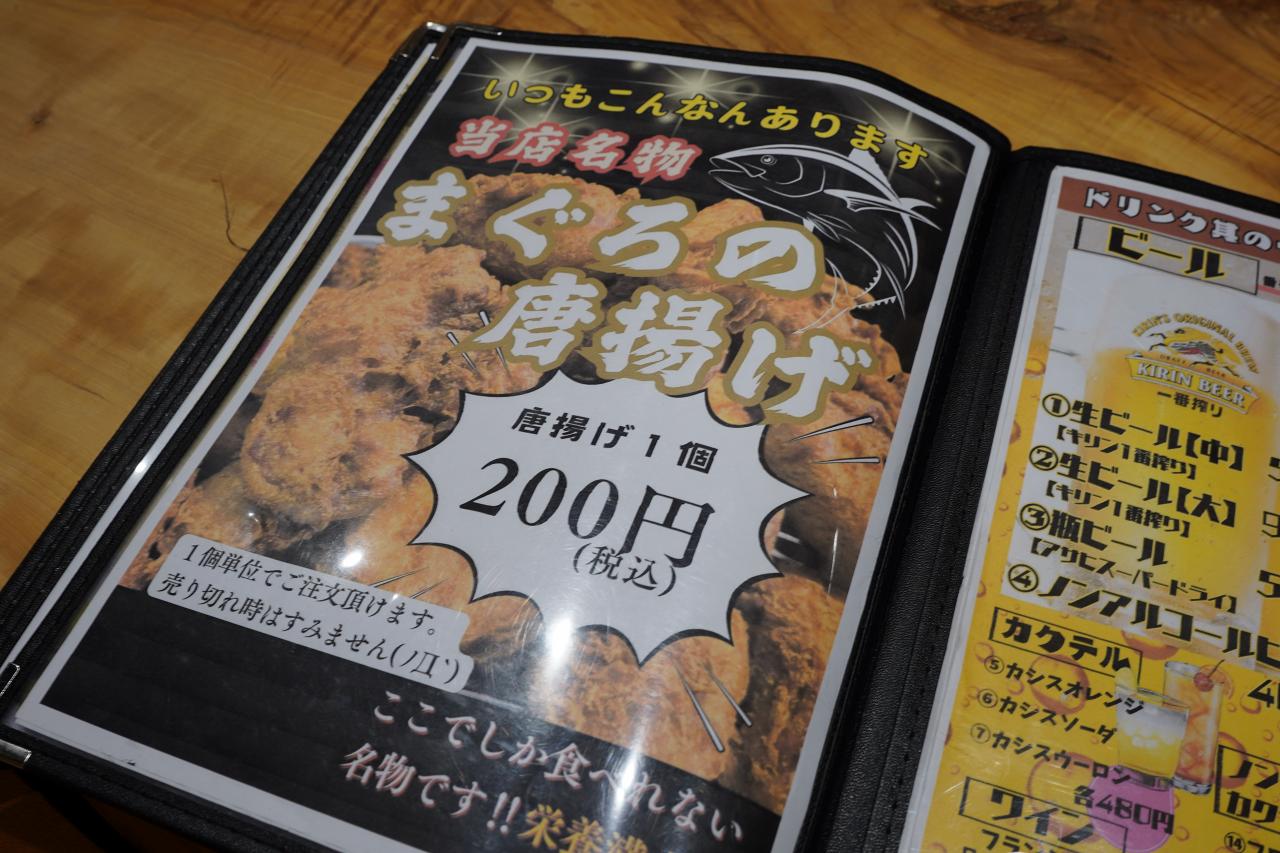 いつもこんなんあります
当店名物
まぐろの
唐揚げ
唐揚げ1個
200円
(税込)
1個単位でご注文頂けます。
売り切れ時はすみません(ノД`)
ここでしか食べれない
名物です!!栄養満
ドリンク其の
ビール
KIRIN'S ORIGINAL BREW
KIRIN BEER
一番搾り
①生ビール【中】
【キリン1番搾り】
②生ビール【大】
【キリン1番搾り】
③瓶ビール
【アサヒスーパードライ】
④ノンアルコールビ
カクテル
⑤カシスオレンジ
⑥カシスソーダ
⑦カシスウーロン
各480円
ノン
カク
⑭
ワイン
フラン